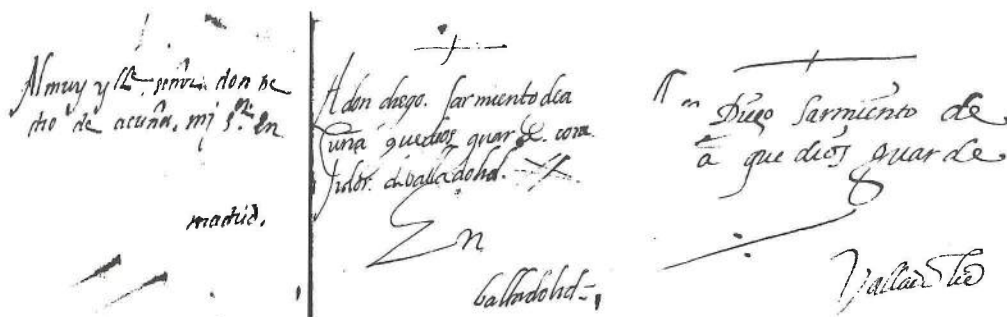 Al muy yllᵉ señor don pe
dro de acuña, mi sʳ. En
madrid.
A don diego. sarmiento dea
cuña que dios guarde. corre
jidor. d valladolid.
En
balladolid
Diego sarmiento de
a que dios guarde